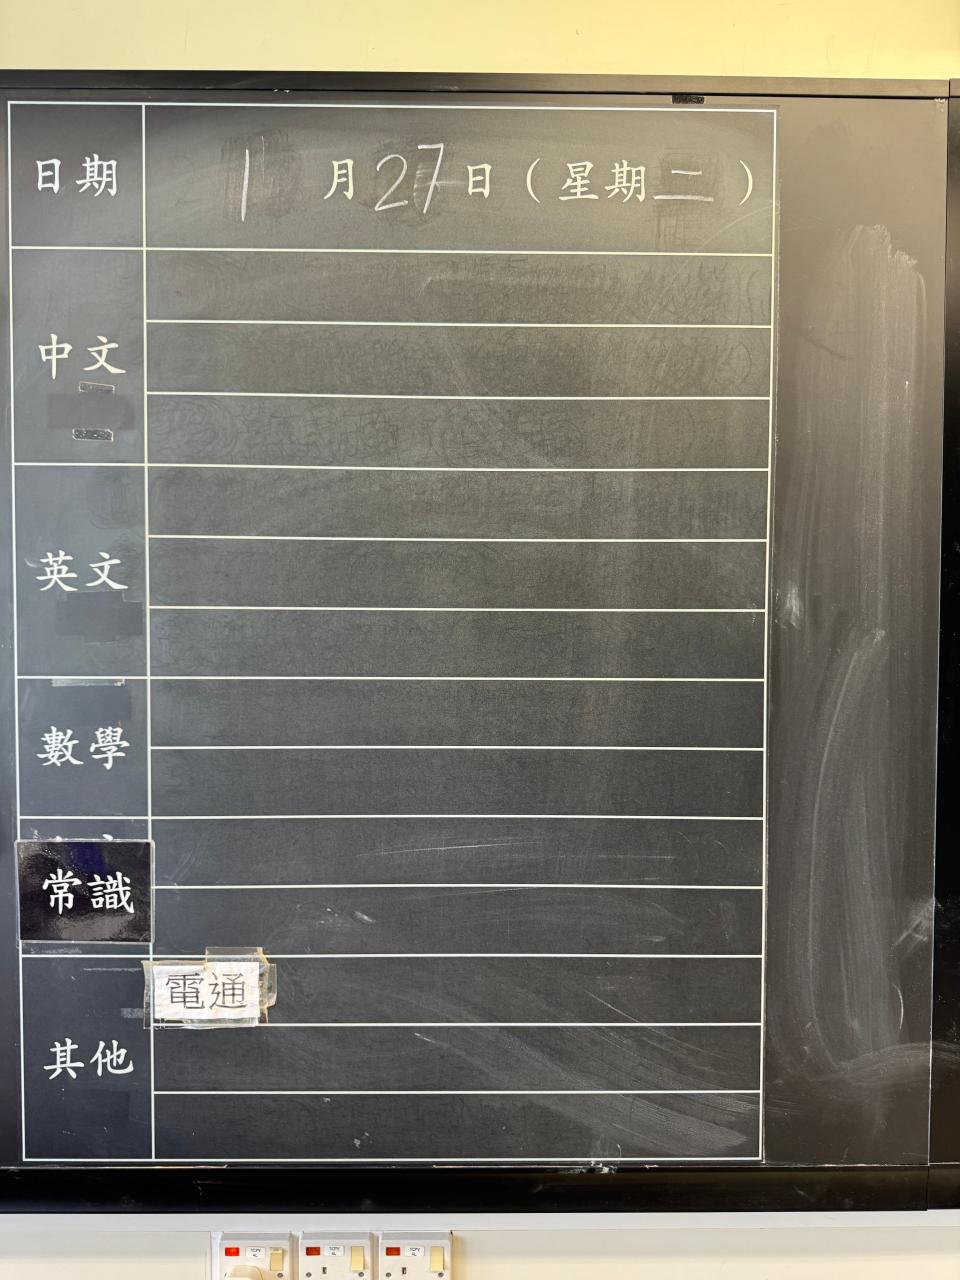 日期 1月27日(星期二)
中文
英文
數學
常識
電通
其他